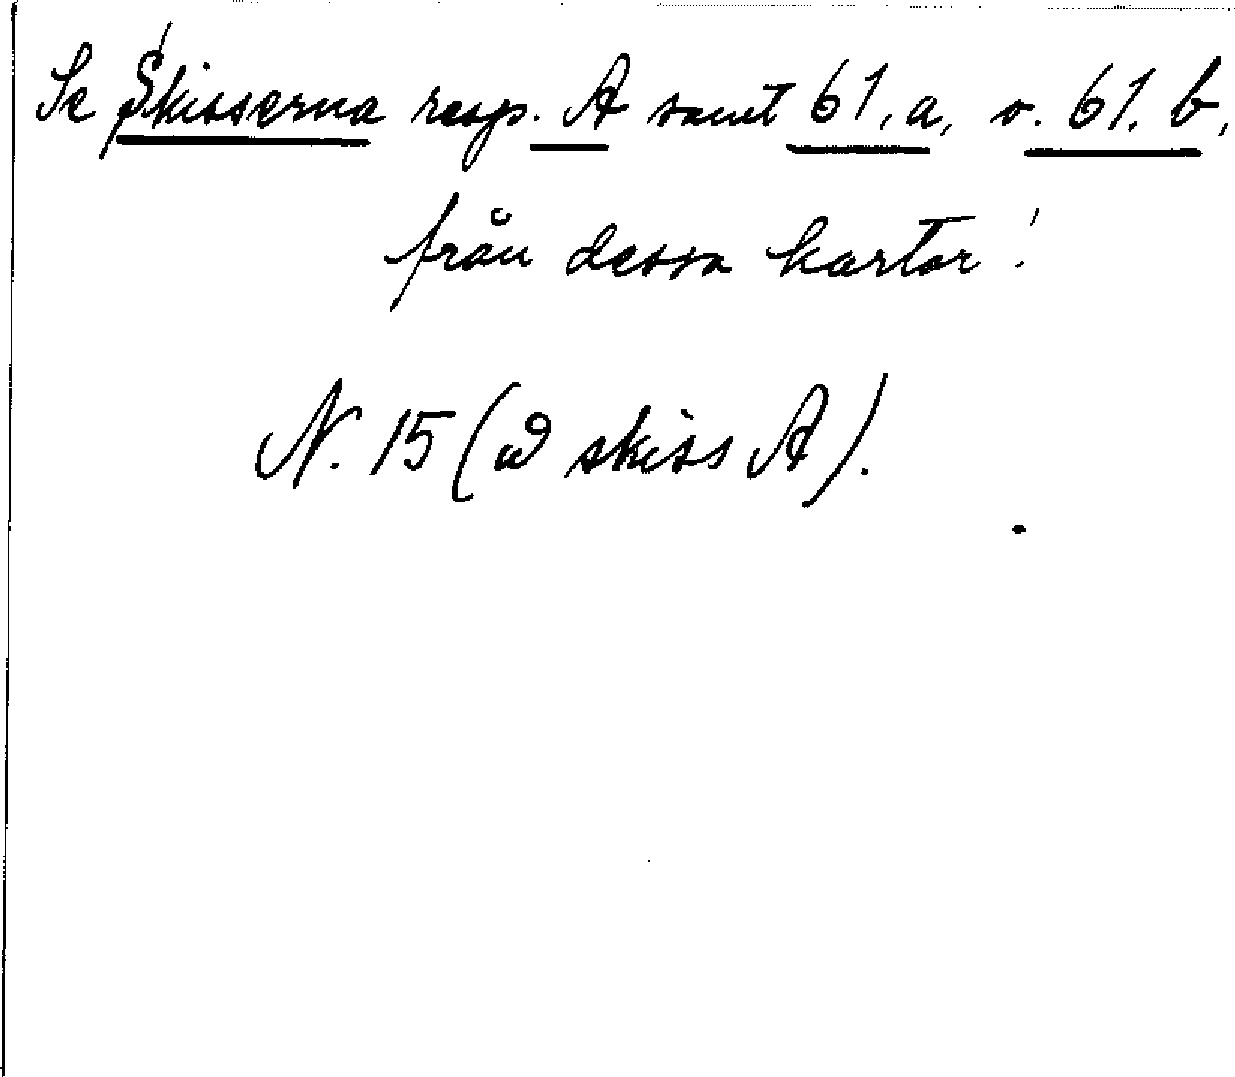 Se Skisserna resp. A samt 61, a, o. 61. b,
från dessa kartor!
N. 15 (å skiss A).